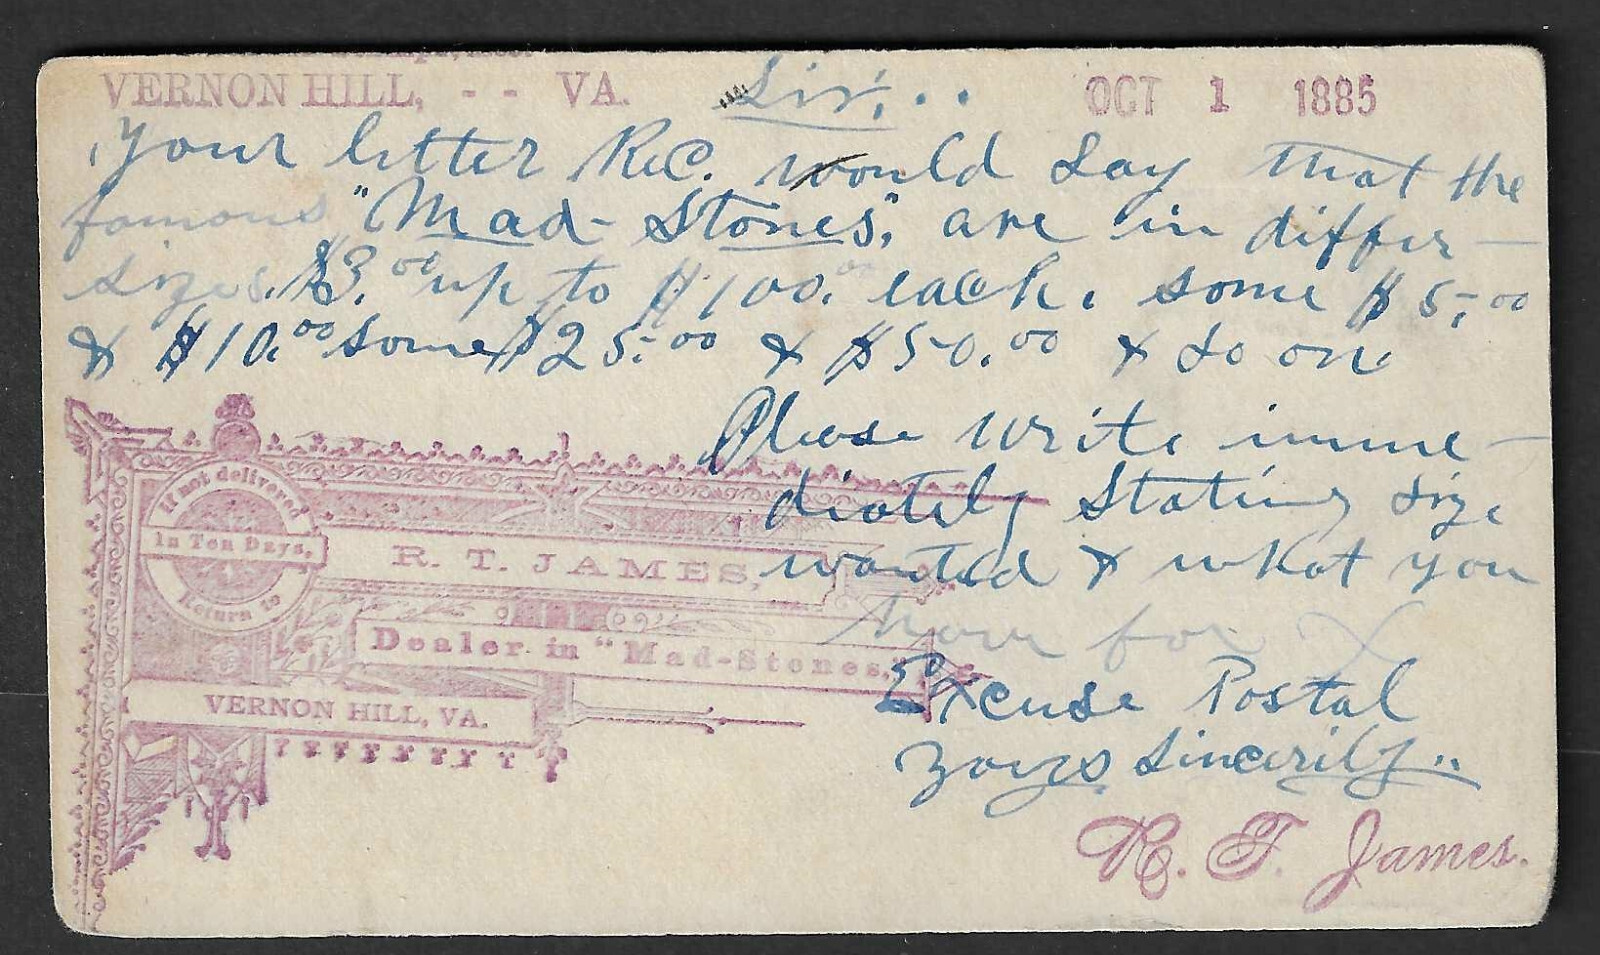 VERNON HILL, - - VA. Sir, . . OCT 1 1885
Your letter Rec. would say that the
famous "Mad-Stones", are in differ-
sizes. $3.00 up to $100.00 each. some $5.00
& $10.00 some $25.00 & $50.00 & so on.
Please write imme-
diately stating size
wanted & what you
for
Excuse Postal
yours sincerily..
R. T. James.
If not delivered
in Ten Days,
Return to
R. T. JAMES,
Dealer in "Mad-Stones,"
VERNON HILL, VA.